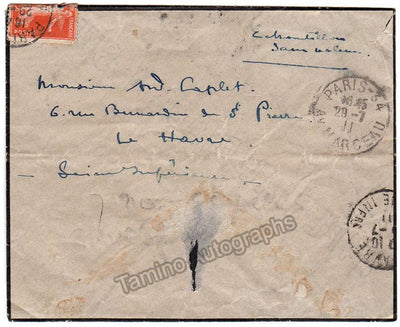 Echantillon
Sans valeur
PARIS-34
16 45
29-7
11
AV. MARCEAU
Monsieur Caplet
6, rue Bernardin de St Pierre
Le Havre
Seine Inférieure
Tamino Autographs